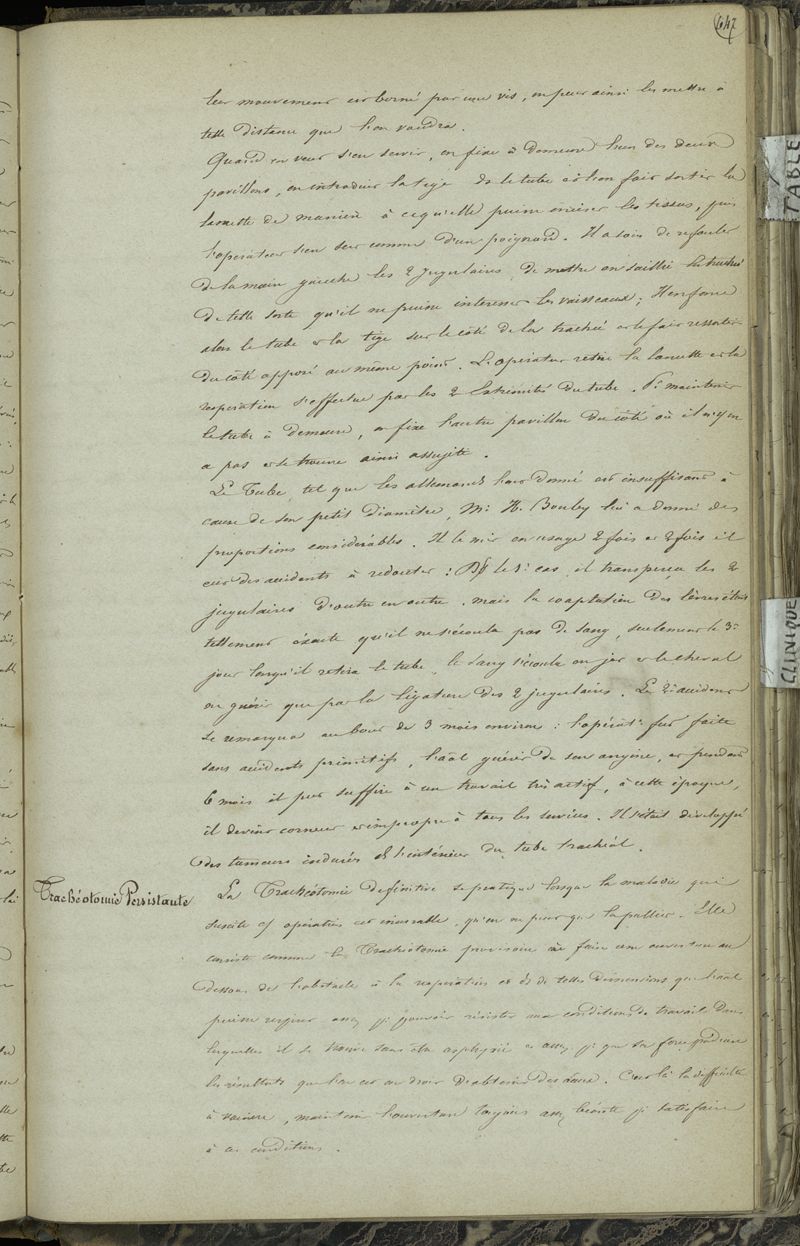 647
leur mouvement est borné par une vis, on peut ainsi les mettre à
telle distance que l'on voudra.
Quand on veut s'en servir, on fixe à demeure l'un des deux
pavillons, on introduit la tige ds le tube et l'on fait sortir la
lancette de manière à ce qu'elle puisse inciser les tissus, puis
l'opérateur s'en sert comme d'un poignard. Il a soin de refouler
de la main gauche les 2 jugulaires, de mettre en saillie la trachée
de telle sorte qu'il ne puisse interesser les vaisseaux; Il enfonce
alors le tube et la tige sur le côté de la trachée et le fait ressortir
du côté opposé au même point. L'operateur retire la lancette et la
respiration s'effectue par les 2 extremités du tube. Pr maintenir
le tube à demeure, on fixe l'autre pavillon du côté où il n'y en
a pas et le trouve ainsi assujetti.
Le Tube, tel que les allemands l'ont donné est insuffisant à
cause de son petit diamètre, Mr H. Bouley lui a donné des
proportions considérables. Il le mit en usage 2 fois et 2 fois il
eut des accidents à redouter: ds le 1er cas, il transperça les 2
jugulaires d'outre en outre, mais la coaptation des lèvres était
tellement exacte qu'il ne s'écoula pas de sang, seulement le 3e
jour lorsqu'il retira le tube, le sang s'écoula en jet et le cheval
ne guérit que par la ligature des 2 jugulaires. Le 2e accident
se remarqua au bout de 3 mois environ: l'opérat. fut faite
sans accidents primitifs, l'aal guérit de son angine, et pendant
6 mois il put suffire à un travail très actif, à cette époque,
il devint corneur et impropre à tous les services. Il s'était développé
des tumeurs indurées ds l'intérieur du tube trachéal.
Trachéotomie Persistante
La Trachéotomie définitive se pratique lorsque la maladie qui
suscite opération est incurable, qu'on ne peut que la pallier. Elle
consiste comme la Trachéotomie provisoire à faire une ouverture au
dessous de l'obstacle à la respiration et de telles dimensions que l'aal
puisse respirer assez pr pouvoir résister aux conditions de travail dans
lesquelles il se trouve sans être asphyxié et assez pr que sa force produise
les résultats que l'on est en droit d'obtenir. C'est là la difficulté
à vaincre, maintenir l'ouverture toujours assez béante pr satisfaire
à ces conditions.
TABLE
CLINIQUE